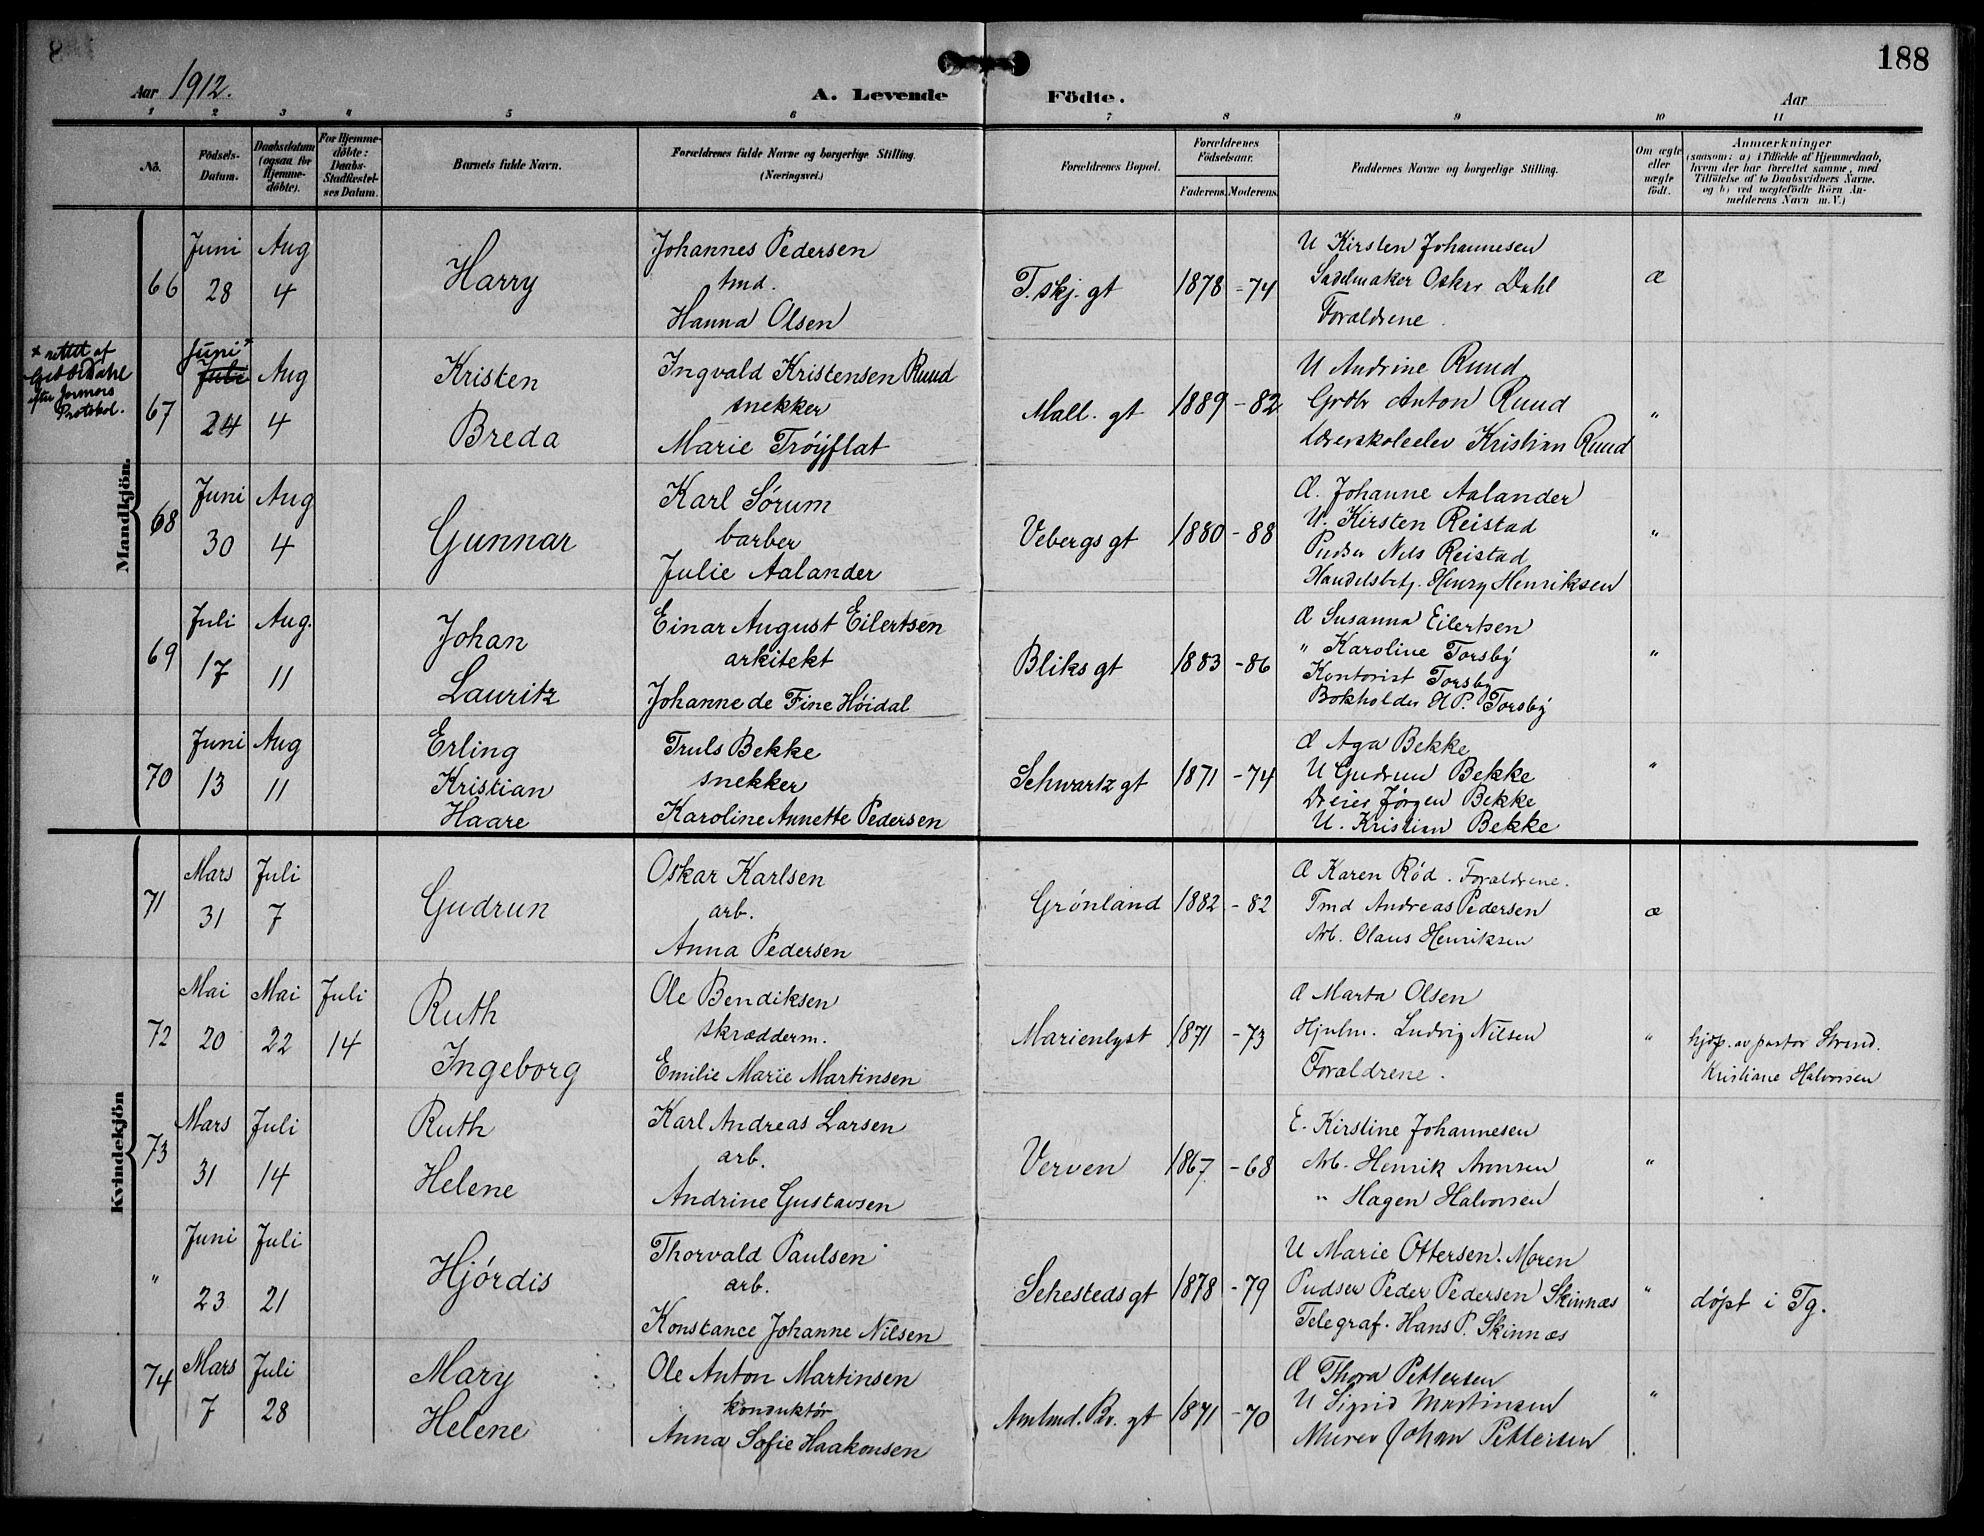 188
Aar 1912.
A. Levende Födte.
Aar
1 2 3 4 5 6 7 8 9 10 11
No.
Födsels-Datum.
Daabsdatum (ogsaa for Hjemme-döbte).
For Hjemme-döbte: Daabs-Stadfæstel-ses Datum.
Barnets fulde Navn.
Forældrenes fulde Navne og borgerlige Stilling. (Næringsvei.)
Forældrenes Bopæl.
Forældrenes Födselsaar.
Faderens. Moderens.
Faddernes Navne og borgerlige Stilling.
Om ægte eller uægte födt.
Anmærkninger
(saasom: a) i Tilfælde af Hjemmedaab, hvem der har forrettet samme, med Tilföielse af to Daabsvidners Navne, og b) ved uægtefödte Börn An-melderens Navn m. V.)
Mandkjön.
66
Juni 28
Aug 4
Harry
Johannes Pedersen
tmd.
Hanna Olsen
T.skj. gt
1878 - 74
U Kirsten Johannesen
Sadelmaker Oskar Dahl
Forældrene.
æ
x rettet af
efter Jormors
Protokol.
67
Juni x
Juli
24
Aug 4
Kristen
Breda
Ingvald Kristensen Ruud
snekker
Marie Tröyflat
Mall. gt
1889 - 82
U Andrine Ruud
Grdbr Anton Ruud
Lærerskoleelev Kristian Ruud
"
68
Juni 30
Aug 4
Gunnar
Karl Sórum
barber
Julie Aalander
Vebergs gt
1880 - 88
Æ. Johanne Aalander
U. Kirsten Reistad
Pudser Nils Reistad
Handelsbetj. Henry Henriksen
"
69
Juli 17
Aug. 11
Johan
Lauritz
Einar August Eilertsen
arkitekt
Johanne de Fine Hóidal
Bliks gt
1883 - 86
Æ Susanna Eilertsen
" Karoline Torsby
Kontorist Torsby
Bokholder H P. Torsby
"
70
Juni 13
Aug 11
Erling
Kristian
Haare
Truls Bekke
snekker
Karoline Annette Pedersen
Schwartz gt
1871 - 74
Æ Aga Bekke
U Gudrun Bekke
Dreier Jørgen Bekke
U. Kristian Bekke
"
Kvindekjön
71
Mars 31
Juli 7
Gudrun
Oskar Karlsen
arb.
Anna Pedersen
Grónland
1882 - 82
Æ Karen Ród. Forældrene.
Tmd Andreas Pedersen
Arb. Olaus Henriksen
æ
72
Mai 20
Mai 22
Juli 14
Ruth
Ingeborg
Ole Bendiksen
skrædderm.
Emilie Marie Martinsen
Marienlyst
1871 - 73
Æ Marta Olsen
Hjulm. Ludvig Nilsen
Forældrene.
"
hjdp. av pastor Strand.
Kristiane Halvorsen
73
Mars 31
Juli 14
Ruth
Helene
Karl Andreas Larsen
arb.
Andrine Gustavsen
Verven
1867 - 68
E. Kirstine Johannesen
Arb. Henrik Aronsen
" Hagen Halvorsen
"
"
Juni 23
Juli 21
Hjórdis
Thorvald Paulsen
arb.
Konstance Johanne Nilsen
Sehesteds gt
1878 - 79
U Marie Ottersen. Moren
Pudser Peder Pedersen Skinnæs
Telegraf. Hans P. Skinnæs
"
döpt i Tg.
74
Mars 7
Juli 28
Mary
Helene
Ole Anton Martinsen
konduktör
Anna Sofie Haakonsen
Amtmd. Bl. gt
1871 - 70
Æ Thora Pettersen
U Sigrid Martinsen
Murer Johan Pettersen
"